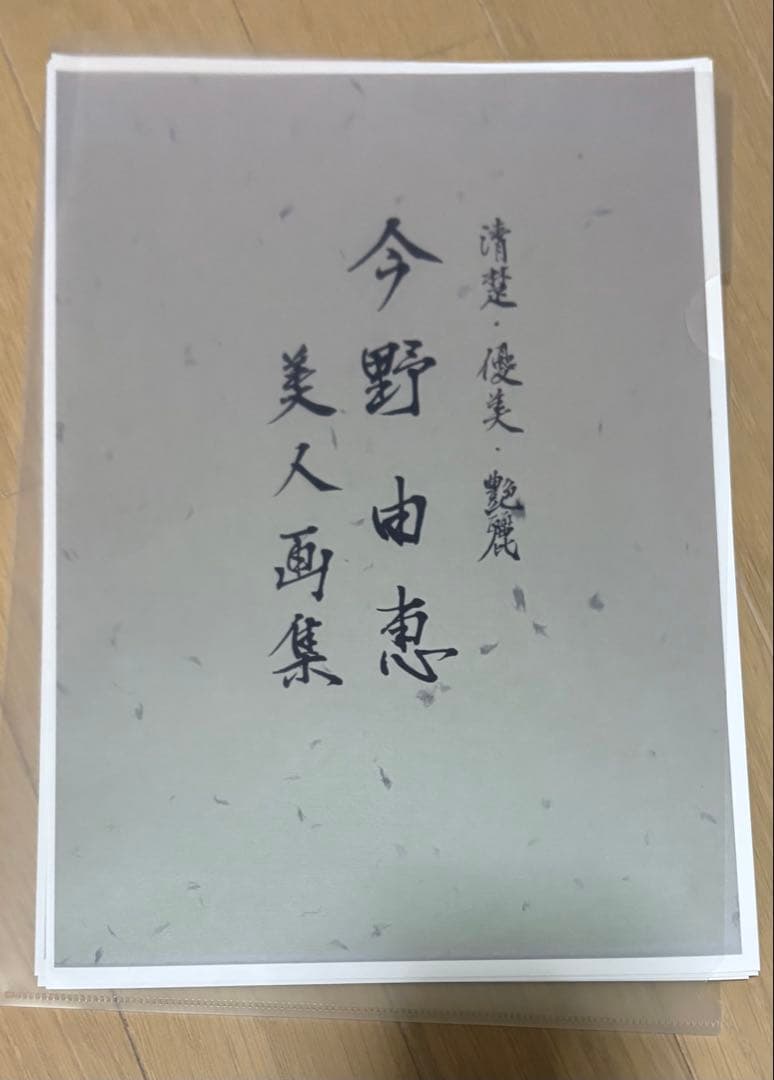 清楚・優美・艶麗
今野由恵
美人画集